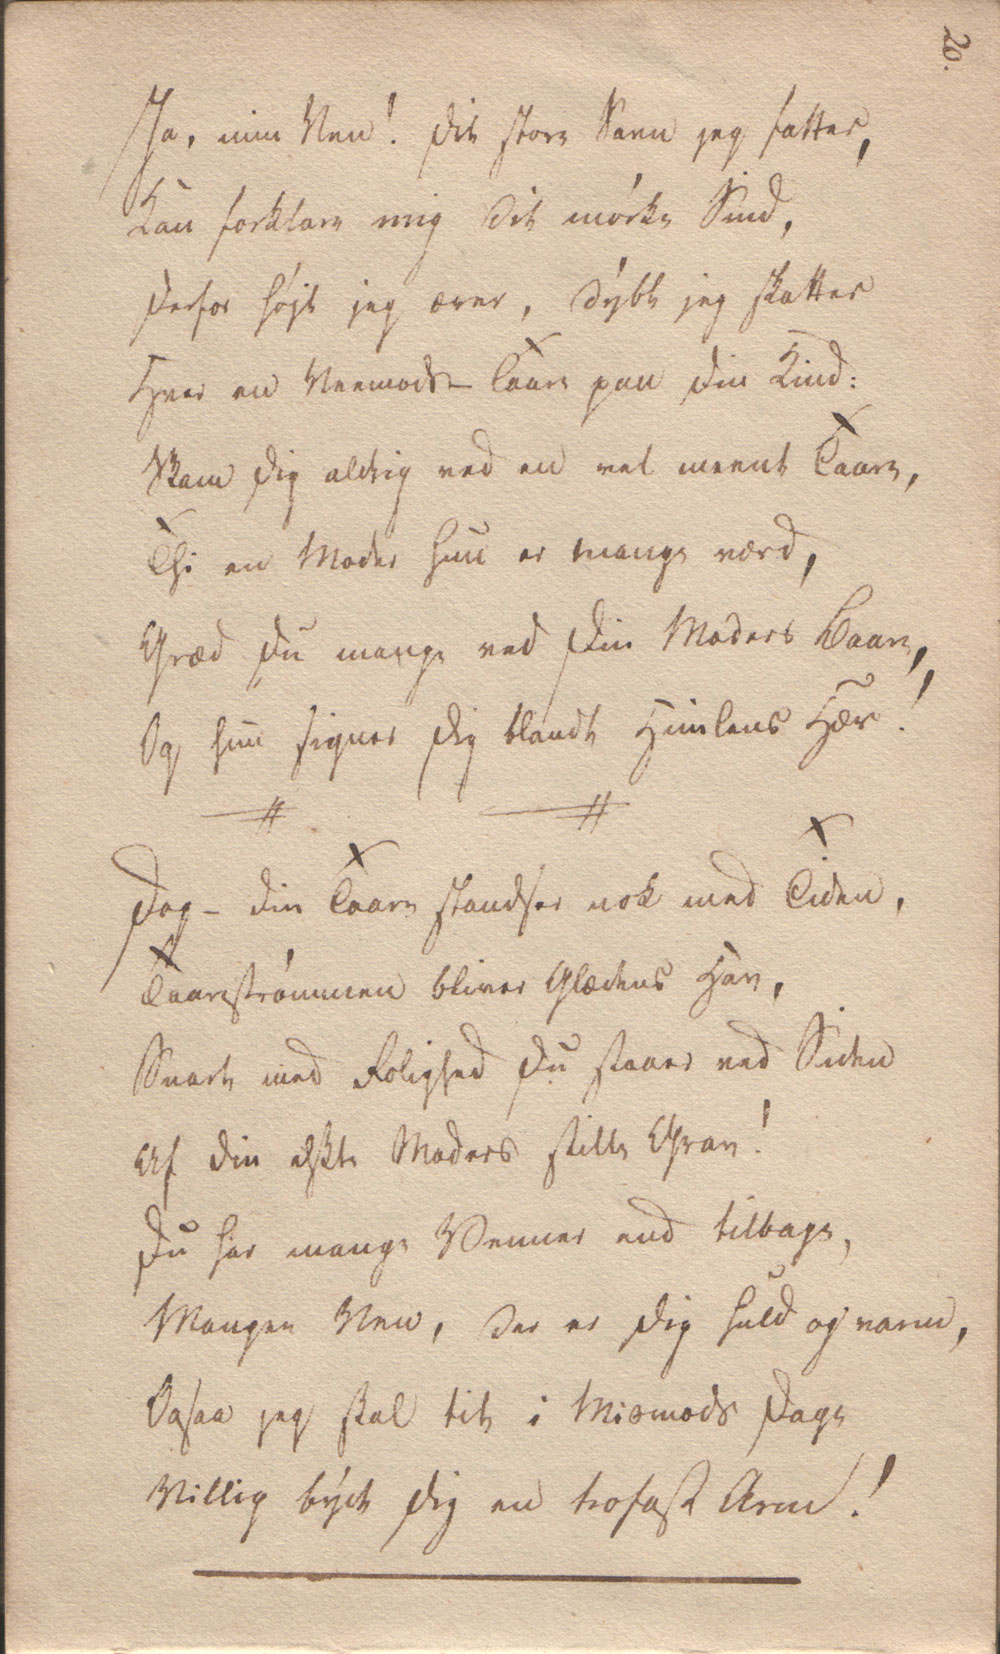 20.
Ja, min Ven! Dit store Savn jeg fatter,
Kan forklare mig dit mörke Sind,
Derfor höjt jeg ærer, dybt jeg skatter
Hver en Veemods-Taare paa din Kind:
Skam dig aldrig ved en vel meent Taare,
Thi en Moder hun er mange værd,
Græd du mange ved din Moders Baare,
Og hun signer dig blandt Himlens Hær!
Dog – din Taare standser nok med Tiden,
Taareströmmen bliver Glædens Hav,
Snart med Rolighed du staaer ved Siden
Af din elskte Moders stille Grav!
Du har mange Venner end tilbage,
Mangen Ven, der er dig huld og varm,
Ogsaa jeg skal tit i Mismods Dage
Villig byde dig en trofast Arm!